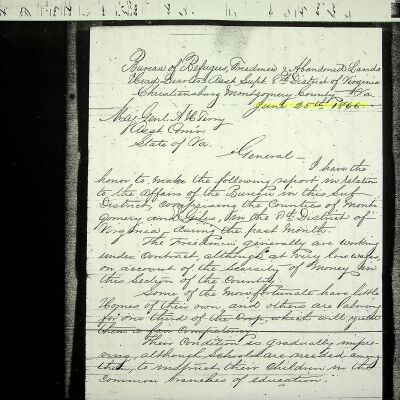 Bureau of Refugees, Freedmen & Abandoned Lands
Head Quarters Asst Supt 8th District of Virginia
Christiansburg Montgomery County Va.
June 25th 1866.
Maj Genl. A H Terry
Asst Comr
State of Va.
General—
I have the
honor to make the following report in relation
to the affairs of the Bureau in this Sub
District, comprising the Counties of Mont
gomery and Giles, in the 8th District of
Virginia, during the past month.
The Freedmen generally are working
under Contract, although at very low wages,
on account of the Scarcity of Money in
this Section of the Country.
Some of the more fortunate have little
Homes of their own, and others are laboring
for one third of the Crop, which will yield
them a fair Competency.
Their Condition is gradually impro
ving, although Schools are needed among
them, to instruct their Children in the
Common branches of education.